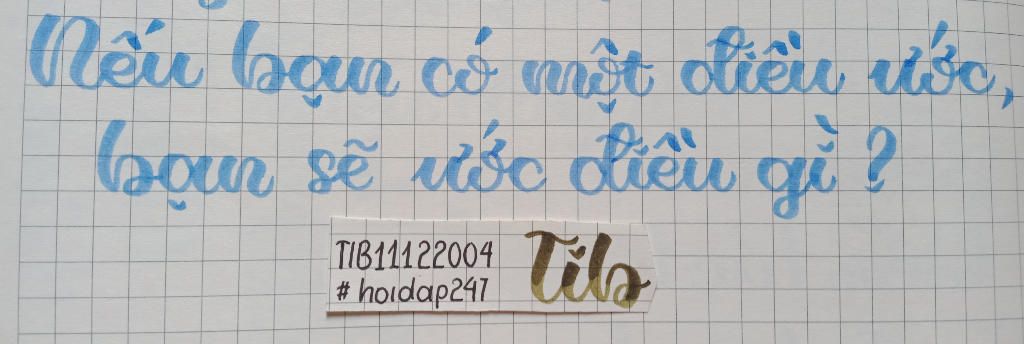 Nếu bạn có một điều ước,
bạn sẽ ước điều gì?
TIB11122004
#hoidap247
Tib